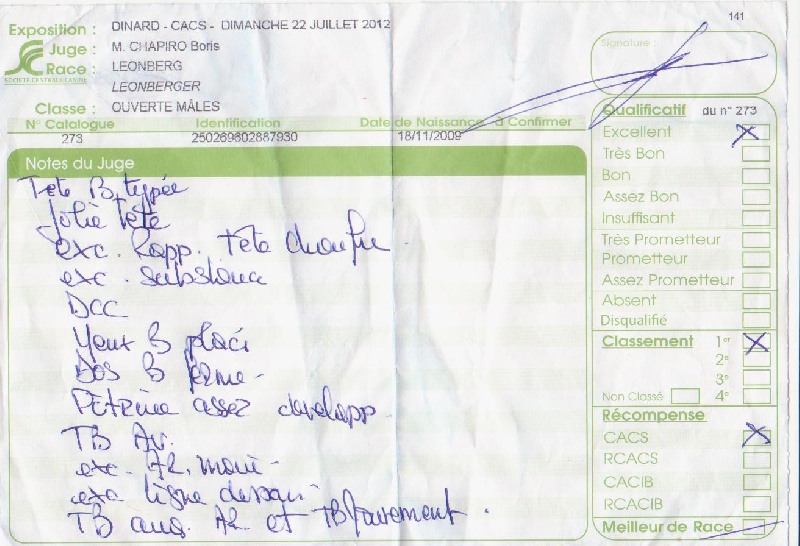 141
Exposition : DINARD - CACS - DIMANCHE 22 JUILLET 2012
Juge : M. CHAPIRO Boris
Race : LEONBERG
LEONBERGER
SOCIÉTÉ CENTRALE CANINE
Classe : OUVERTE MÂLES
N° Catalogue Identification Date de Naissance à Confirmer
273 250269602887930 18/11/2009
Signature :
Notes du Juge
Tete B. typée
Jolie Tête
exc. Rapp. Tete chanfre
exc. substance
DCC
Yeux B placé
Dos B ferme -
Poitrine assez developp
TB Av.
exc. AR.
exc ligne dessus
TB ang. AR et TB
Qualificatif du n° 273
Excellent X
Très Bon
Bon
Assez Bon
Insuffisant
Très Prometteur
Prometteur
Assez Prometteur
Absent
Disqualifié
Classement 1er X
2e
3e
Non Classé 4e
Récompense
CACS X
RCACS
CACIB
RCACIB
Meilleur de Race